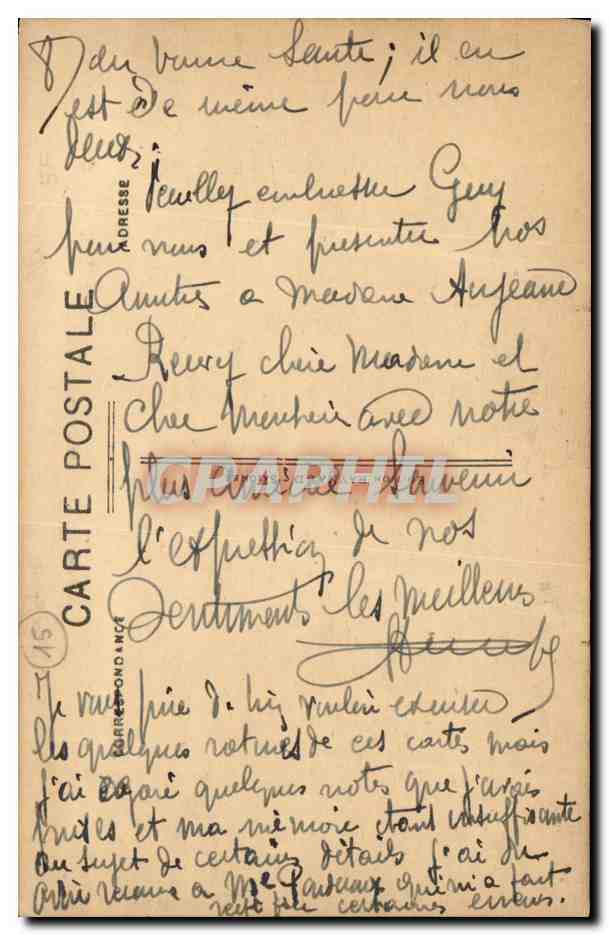 en bonne Santé; il en
est de même pour nous
deux.
Veuillez embrasser Guy
pour nous et présenter nos
Amitiés a Madame Anjeand
Recevez chère Madame et
cher Monsieur avec notre
plus amical Souvenir
l'expression de nos
Sentiments les meilleurs
Je vous prie de bien vouloir excuser
les quelques ratures de ces cartes mais
j'ai égaré quelques notes que j'avais
prises et ma mémoire étant insuffisante
au sujet de certains détails j'ai du
avoir recours a Me qui m'a fait
certaines erreurs.
CARTE POSTALE
ADRESSE
CORRESPONDANCE
15
CPAPHIL